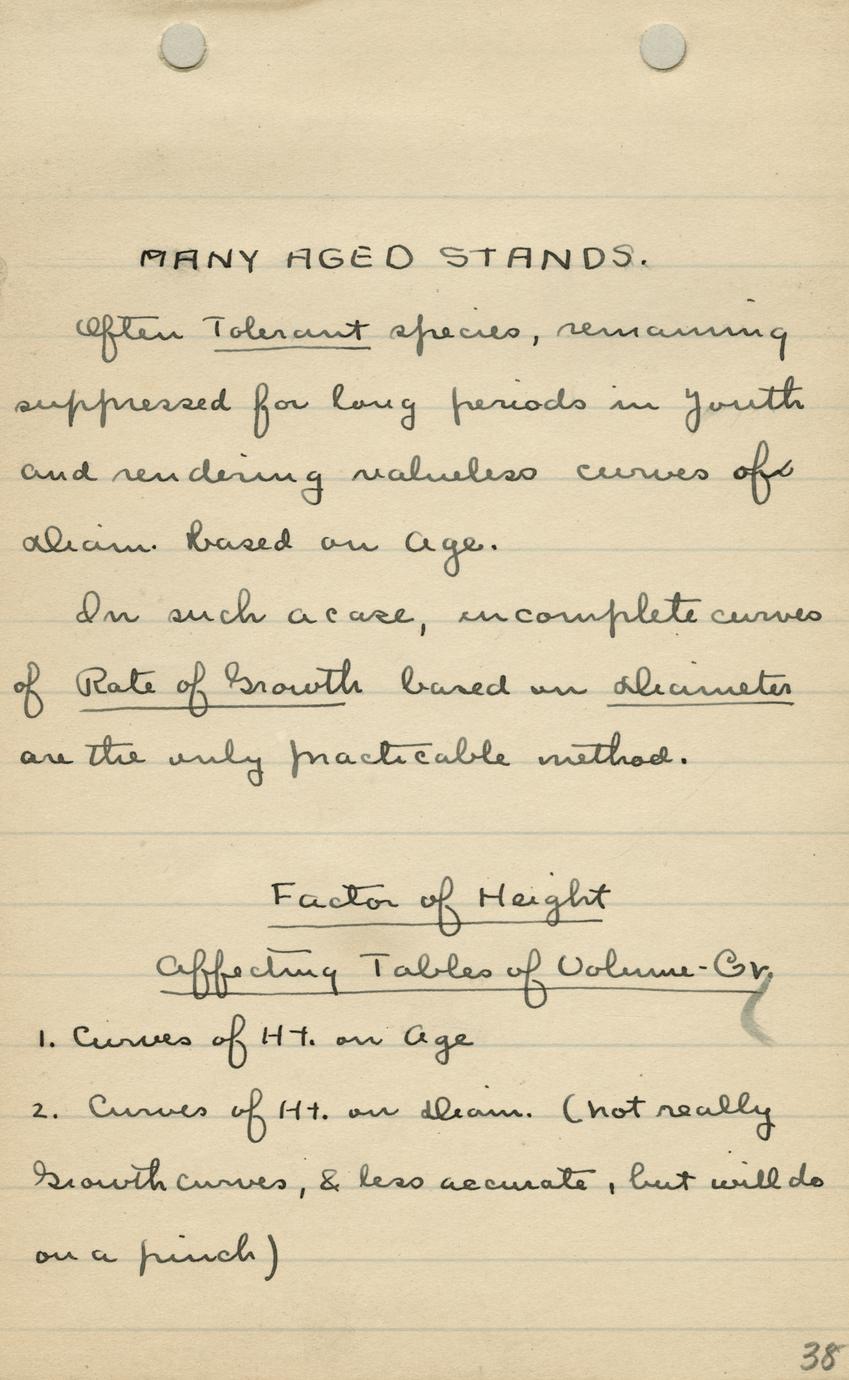 MANY AGED STANDS.
Often Tolerant species, remaining
suppressed for long periods in youth
and rendering valueless curves of
Diam. based on Age.
In such a case, incomplete curves
of Rate of Growth based on Diameter
are the only practicable method.
Factor of Height
Affecting Tables of Volume-Gr.
1. Curves of Ht. on Age
2. Curves of Ht. on Diam. (not really
Growth curves, & less accurate, but will do
on a pinch)
38